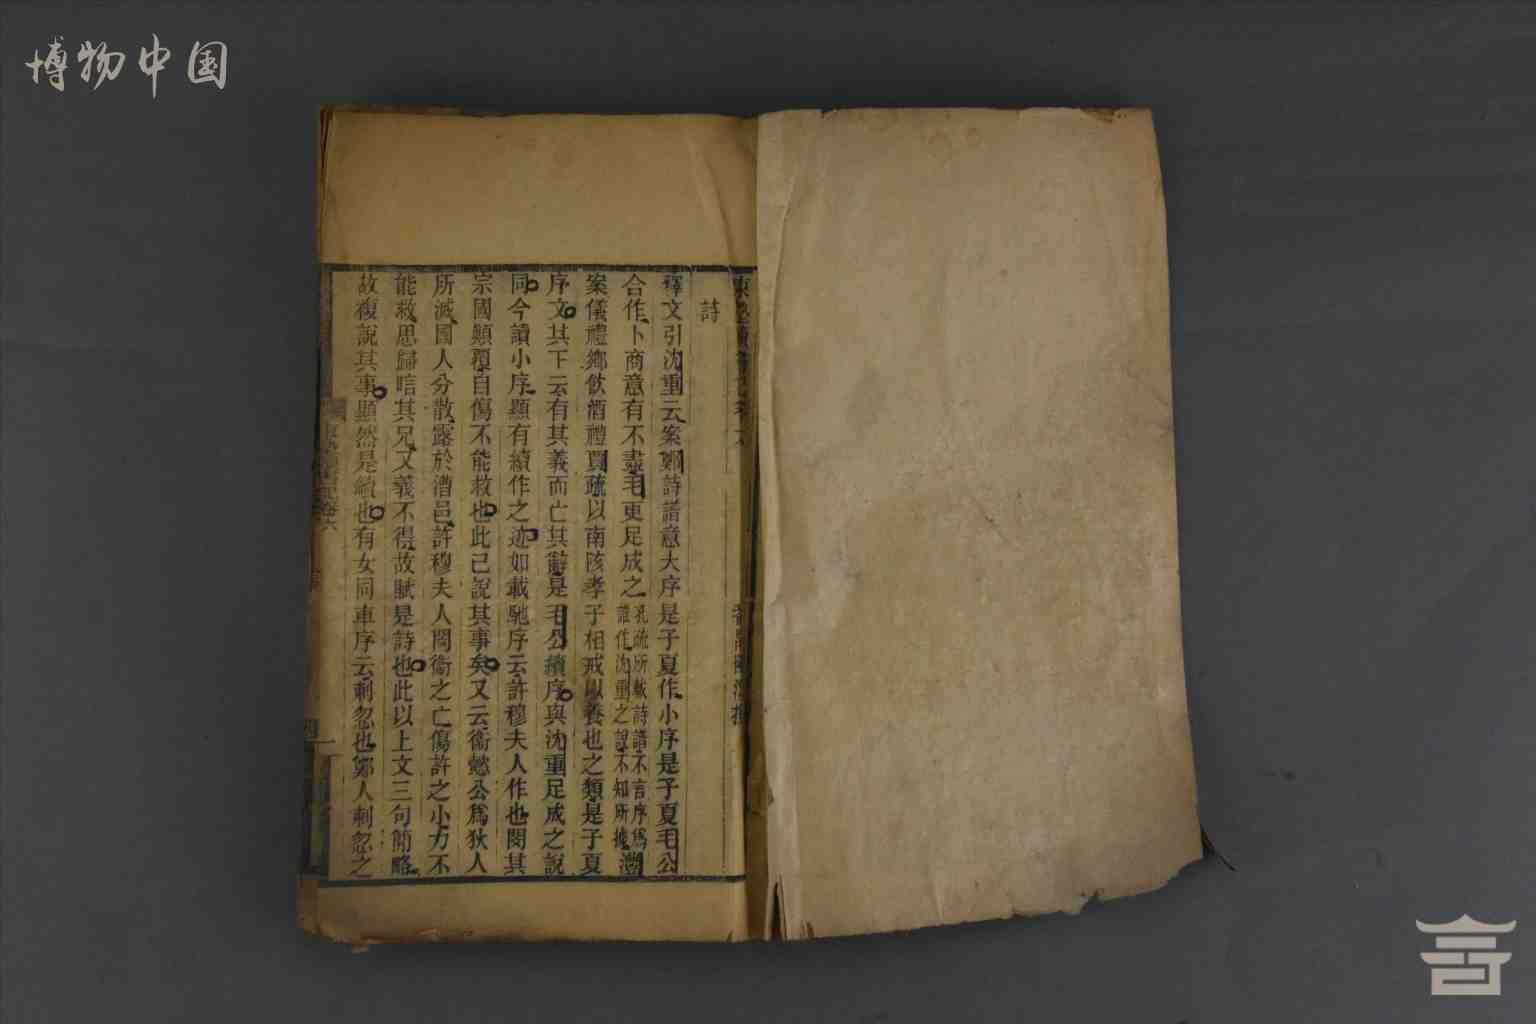 博物中国
東塾讀書記卷六
番禺陳澧撰
詩
釋文引沈重云案鄭詩譜意大序是子夏作小序是子夏毛公
合作卜商意有不盡毛更足成之孔疏所載詩譜不言序爲誰作沈重之說不知所據澧
案儀禮鄉飲酒禮賈疏以南陔孝子相戒以養也之類是子夏
序文其下云有其義而亡其辭是毛公續序與沈重足成之說
同今讀小序顯有續作之迹如載馳序云許穆夫人作也閔其
宗國顛覆自傷不能救也此已說其事矣又云衞懿公爲狄人
所滅國人分散露於漕邑許穆夫人閔衞之亡傷許之小力不
能救思歸唁其兄又義不得故賦是詩也此以上文三句簡略
故複說其事顯然是續也有女同車序云刺忽也鄭人刺忽之